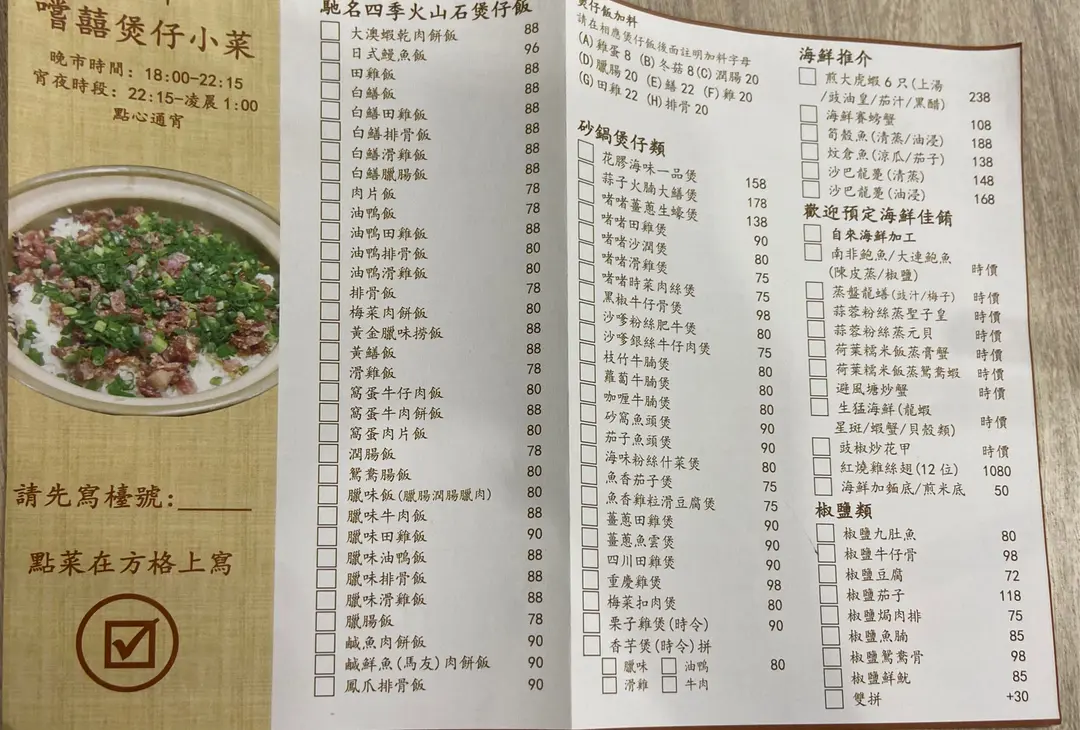 嚐囍煲仔小菜
晚市時間：18:00-22:15
宵夜時段：22:15-凌晨1:00
點心通宵
請先寫檯號:
點菜在方格上寫
馳名四季火山石煲仔飯
大澳蝦乾肉餅飯 88
日式鰻魚飯 96
田雞飯 88
白鱔飯 88
白鱔田雞飯 88
白鱔排骨飯 88
白鱔滑雞飯 88
白鱔臘腸飯 88
肉片飯 78
油鴨飯 78
油鴨田雞飯 88
油鴨排骨飯 80
油鴨滑雞飯 80
排骨飯 78
梅菜肉餅飯 80
黃金臘味撈飯 88
黃鱔飯 88
滑雞飯 78
窩蛋牛仔肉飯 80
窩蛋牛肉餅飯 88
窩蛋肉片飯 80
潤腸飯 78
鴛鴦腸飯 80
臘味飯(臘腸潤腸臘肉) 80
臘味牛肉飯 88
臘味田雞飯 90
臘味油鴨飯 88
臘味排骨飯 88
臘味滑雞飯 88
臘腸飯 78
鹹魚肉餅飯 90
鹹鮮魚(馬友)肉餅飯 90
鳳爪排骨飯 90
煲仔飯加料
請在相應煲仔飯後面註明加料字母
(A)雞蛋8 (B)冬菇8 (C)潤腸20
(D)臘腸20 (E)鱔22 (F)雞20
(G)田雞22 (H)排骨20
砂鍋煲仔類
花膠海味一品煲 158
蒜子火腩大鱔煲 178
啫啫薑蔥生蠔煲 138
啫啫田雞煲 90
啫啫沙潤煲 80
啫啫滑雞煲 75
啫啫時菜肉絲煲 75
黑椒牛仔骨煲 98
沙爹粉絲肥牛煲 80
沙爹銀絲牛仔肉煲 75
枝竹牛腩煲 80
蘿蔔牛腩煲 80
咖喱牛腩煲 80
砂窩魚頭煲 90
茄子魚頭煲 90
海味粉絲什菜煲 80
魚香茄子煲 75
魚香雞粒滑豆腐煲 75
薑蔥田雞煲 90
薑蔥魚雲煲 90
四川田雞煲 90
重慶雞煲 98
梅菜扣肉煲 80
栗子雞煲(時令) 90
香芋煲(時令)拼
臘味 油鴨 80
滑雞 牛肉
海鮮推介
煎大虎蝦6只(上湯
/豉油皇/茄汁/黑醋) 238
海鮮賽螃蟹 108
筍殼魚(清蒸/油浸) 188
炆倉魚(涼瓜/茄子) 138
沙巴龍躉(清蒸) 148
沙巴龍躉(油浸) 168
歡迎預定海鮮佳餚
自來海鮮加工
南非鮑魚/大連鮑魚
(陳皮蒸/椒鹽) 時價
蒸盤龍鱔(豉汁/梅子) 時價
蒜蓉粉絲蒸聖子皇 時價
蒜蓉粉絲蒸元貝 時價
荷葉糯米飯蒸膏蟹 時價
荷葉糯米飯蒸鴛鴦蝦 時價
避風塘炒蟹 時價
生猛海鮮(龍蝦
星斑/蝦蟹/貝殼類) 時價
豉椒炒花甲 時價
紅燒雞絲翅(12位) 1080
海鮮加麵底/煎米底 50
椒鹽類
椒鹽九肚魚 80
椒鹽牛仔骨 98
椒鹽豆腐 72
椒鹽茄子 118
椒鹽焗肉排 75
椒鹽魚腩 85
椒鹽鴛鴦骨 98
椒鹽鮮魷 85
雙拼 +30